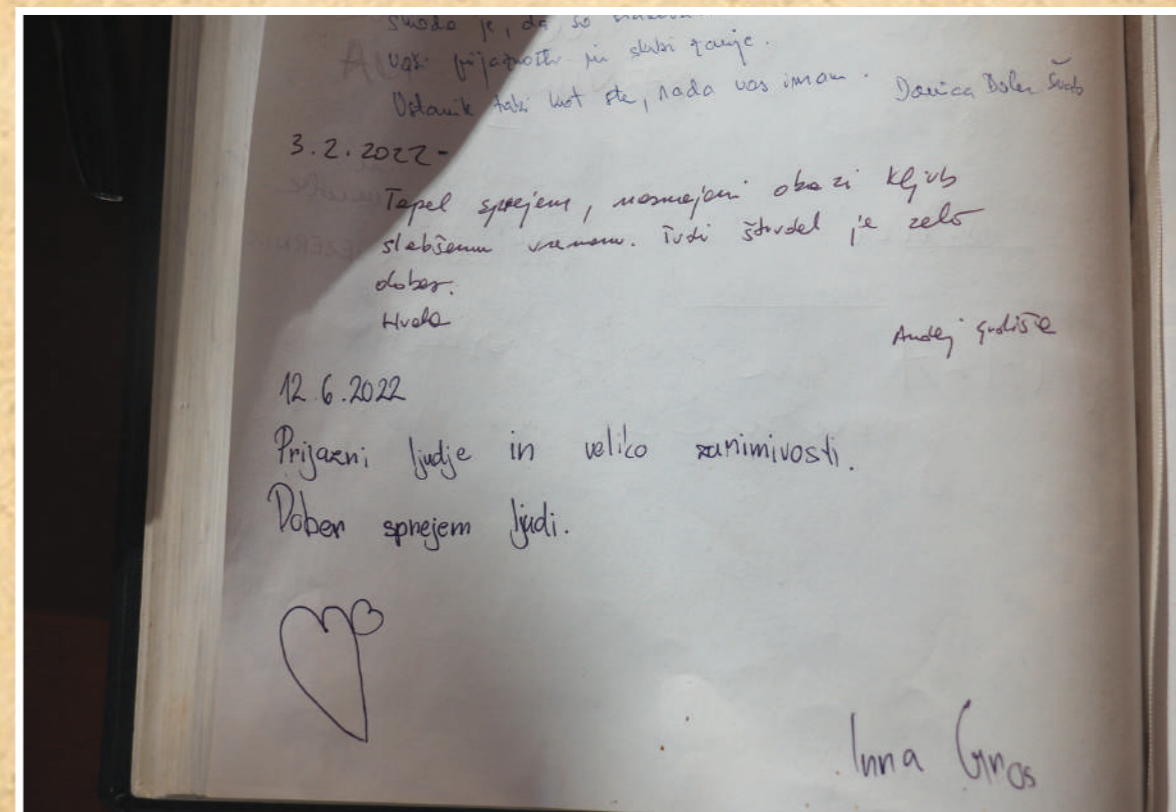 Škoda je, da so
vaši prijaznosti in skrbi zanje.
Ostanite taki kot ste, rada vas imam. Danica
3.2.2022-
Topel sprejem, nasmejani obrazi kljub
slabšemu vremenu. Tudi štrudel je zelo
dober.
Hvala
Andej
12.6.2022
Prijazni ljudje in veliko zanimivosti.
Dober sprejem ljudi.
Inna Gros